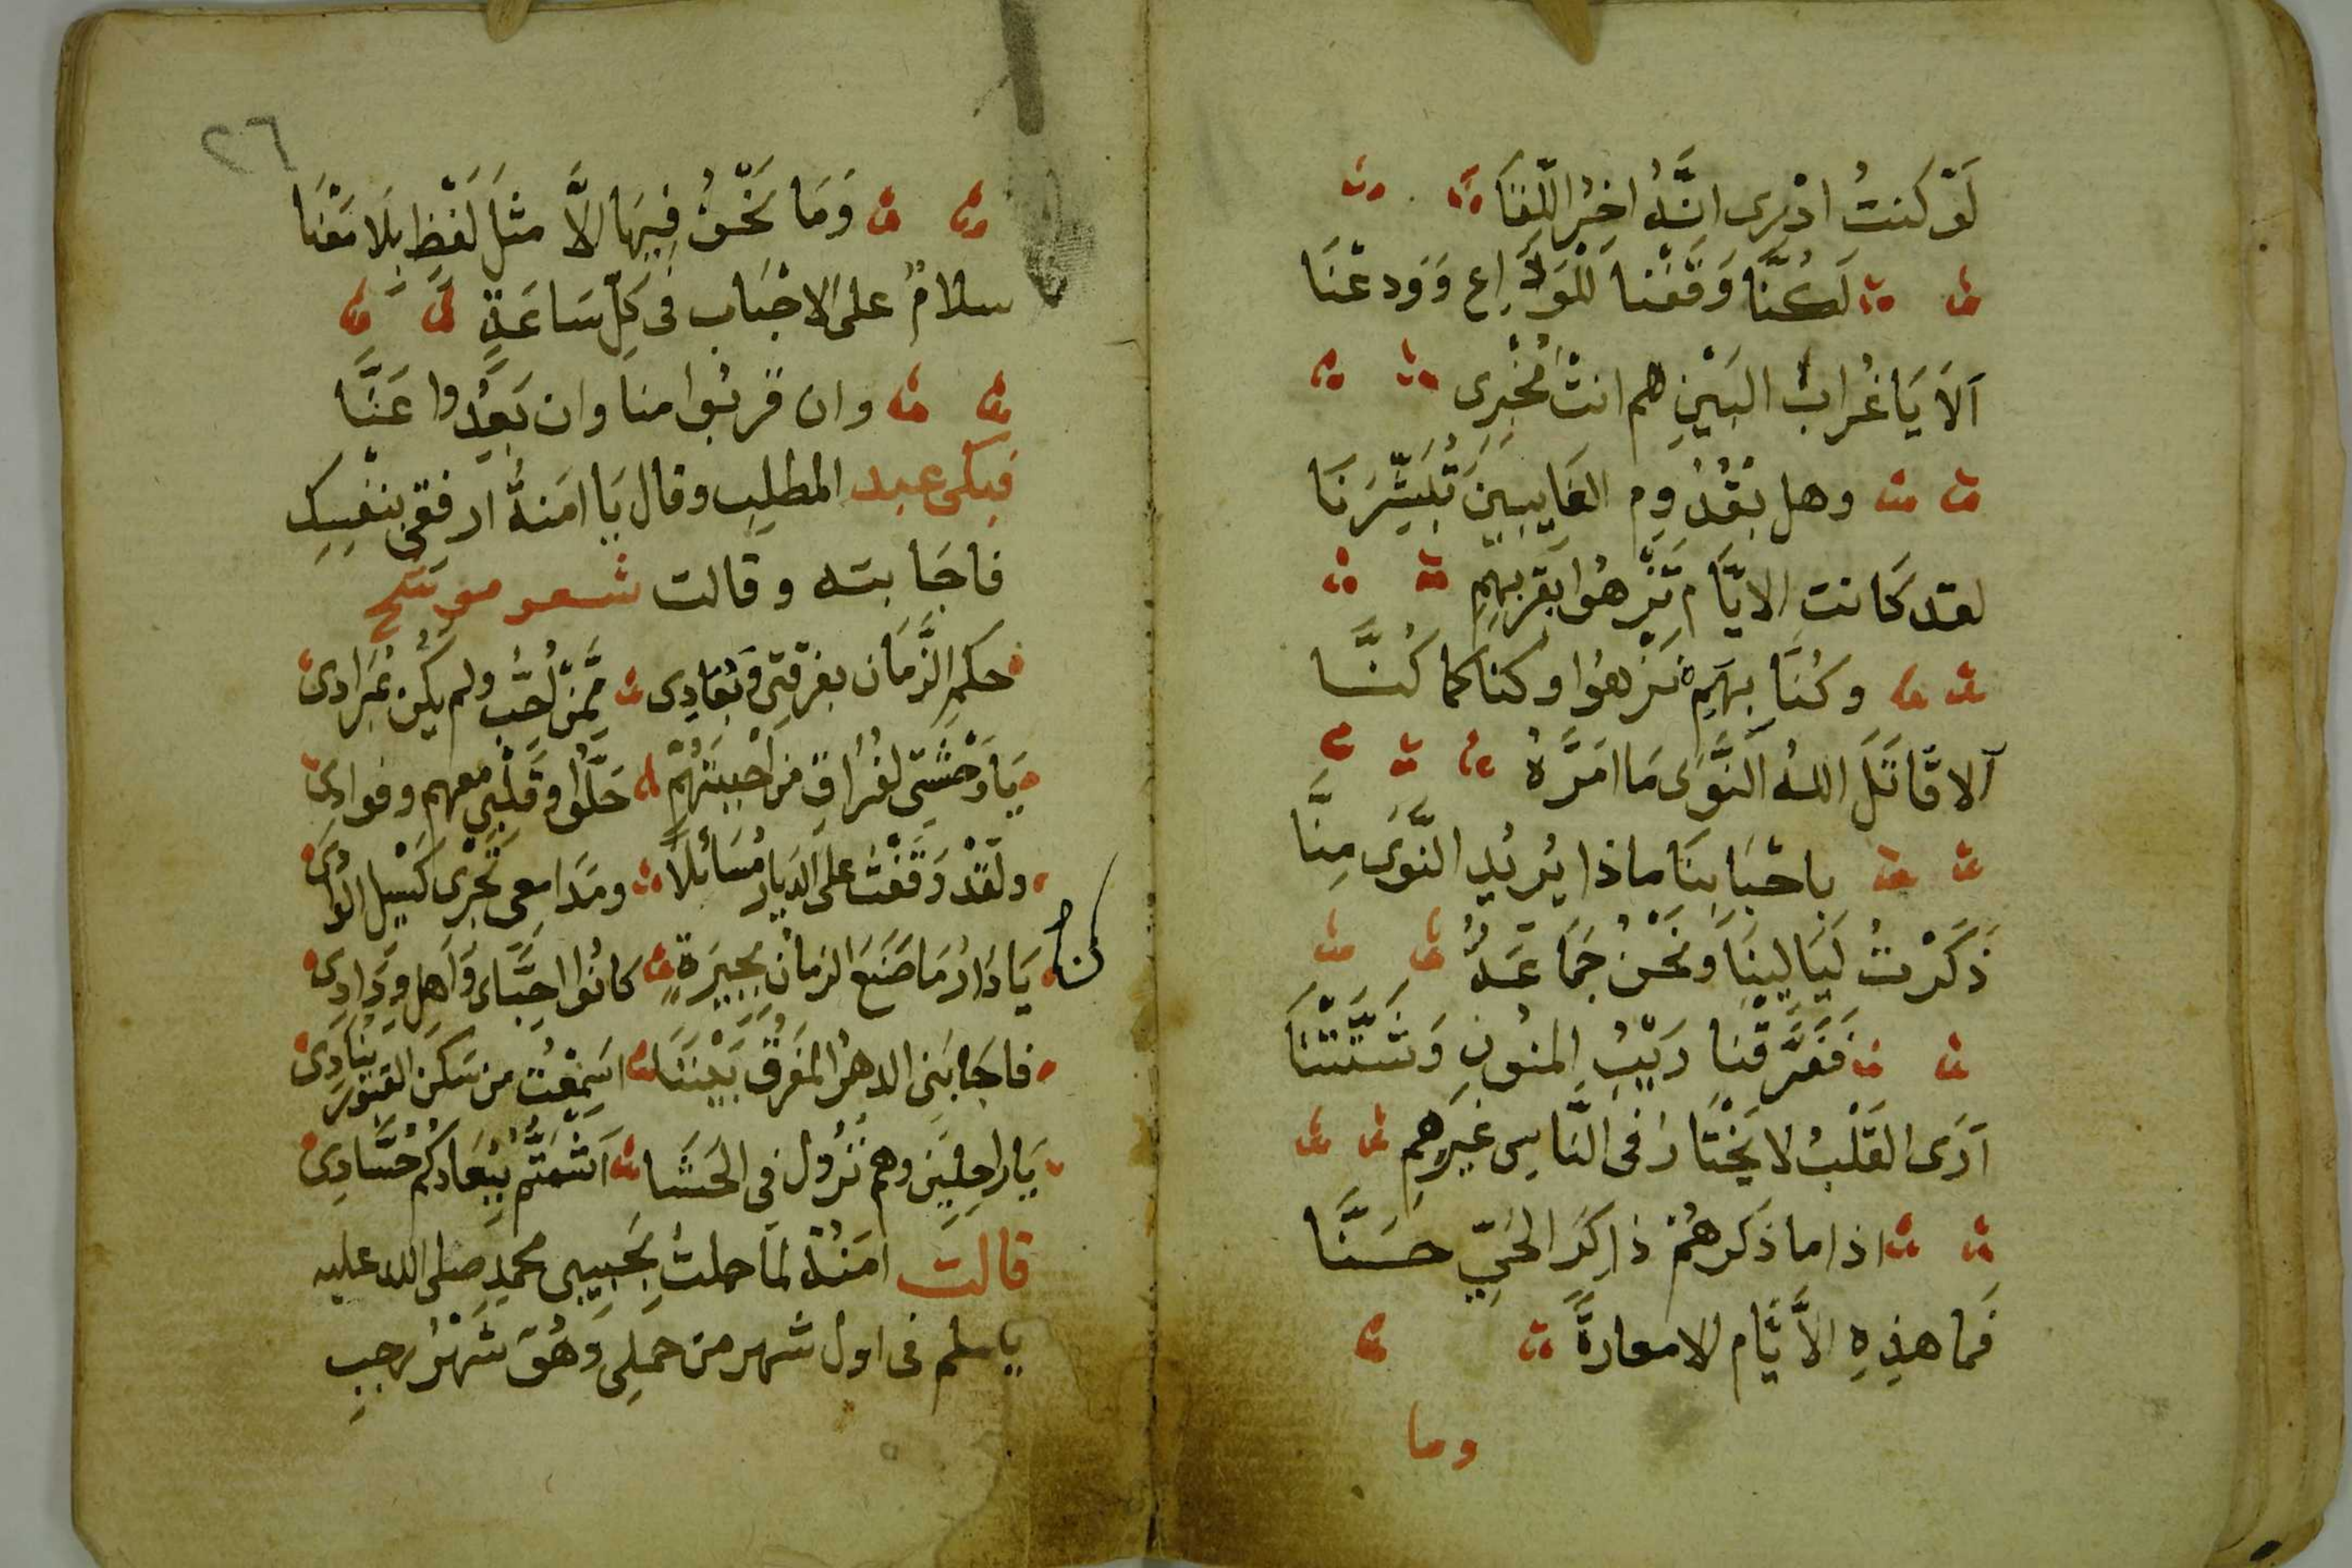 لَوْ كنتُ ادْرى انَّهُ اخِرُ اللِّقَا
لَكُنَّا وَقَفْنا لِلْوَدَاعِ وَوَدعْنَا
اَلاَ يَا غُرابُ البَيْنِ هم انتْ مُخْبِرِى
وهل بقُدُومِ الغَايبِينَ تُبَشِّرَنَا
لقد كَانت الايَّام تَزْهُوا بقربِهِمِ
وكُنَّا بِهِمِ نَزْهوُا وكنا كما كُنَّا
اَلا قَاتَلَ اللهُ النَّوَى مَا امَرَّهُ
باحْبَابِنَا ماذا يُرِيْدِ النَّوَى مِنَّا
ذَكَرْتُ لَيَالِيْنَا وَنَحْنُ جَمَاعَةٌ
فَفَرَّقنَا رَيْبُ المنُونِ وَشَتَّتْنَا
اَرَى القَلْبُ لا يَخْتَارُ فى النَّاسِ غَيرِهِم
اذا ما ذَكَر هُمْ ذاكِرَ الحَيِّ حَسَنَّا
فَما هذِهِ الاَّيَّام الا معارةً
وما
٢٦
وَمَا نَحْنُ فِيهَا الاَّ مثلَ لَفْظِ بِلَا مَعْنَا
سلامٌ على الاحْبَاب فى كلِ سَاعَةٍ
وان قربُوا منا وان بَعُدُوا عَنَّا
فبكى عبد المطلِبِ وقال يَا امَنةُ ارفقى بنفسِكِ
فاجَابته وقالت شعر موشح
حكمِ الزَّمَان بفرقتِى وَبُعَادِى مِمَّنْ احُبُّ ولم يكُن بمُرَادِى
يَا وَحْشتِى لفُرَاقِ من احْببتَهُمْ حَلُّوا وَقَلْبِى معهم وفوادِى
ولَقَدْ وَقَفْتُ على الديارِ مُسَائلاً ومَدَامِعى تَجْرى كَسَيْلِ الوَادى
يَا دَارُ مَا صَنَعَ الزمانْ بجِيرَةٍ كانُوا احِبَّاى وَاَهل وِدَادِى
كنا
فاجَابَنِى الدهرُ المَفَرقُ بَيْنَنَا اسَمِعْت من سَكَن القبُورِ يُنَادِى
يَا راحِلِيْنَ وهم نُزُول فى الحَشَا اَشْمَتُّم بِبُعَادكم حُسَّادِى
قالت امَنُة لما حملتُ بحَبِيبِى محمدٍ صلى الله عليه
ياسلم فى اول شهر من حملِى وَهُوَ شَهْرُ رجبِ